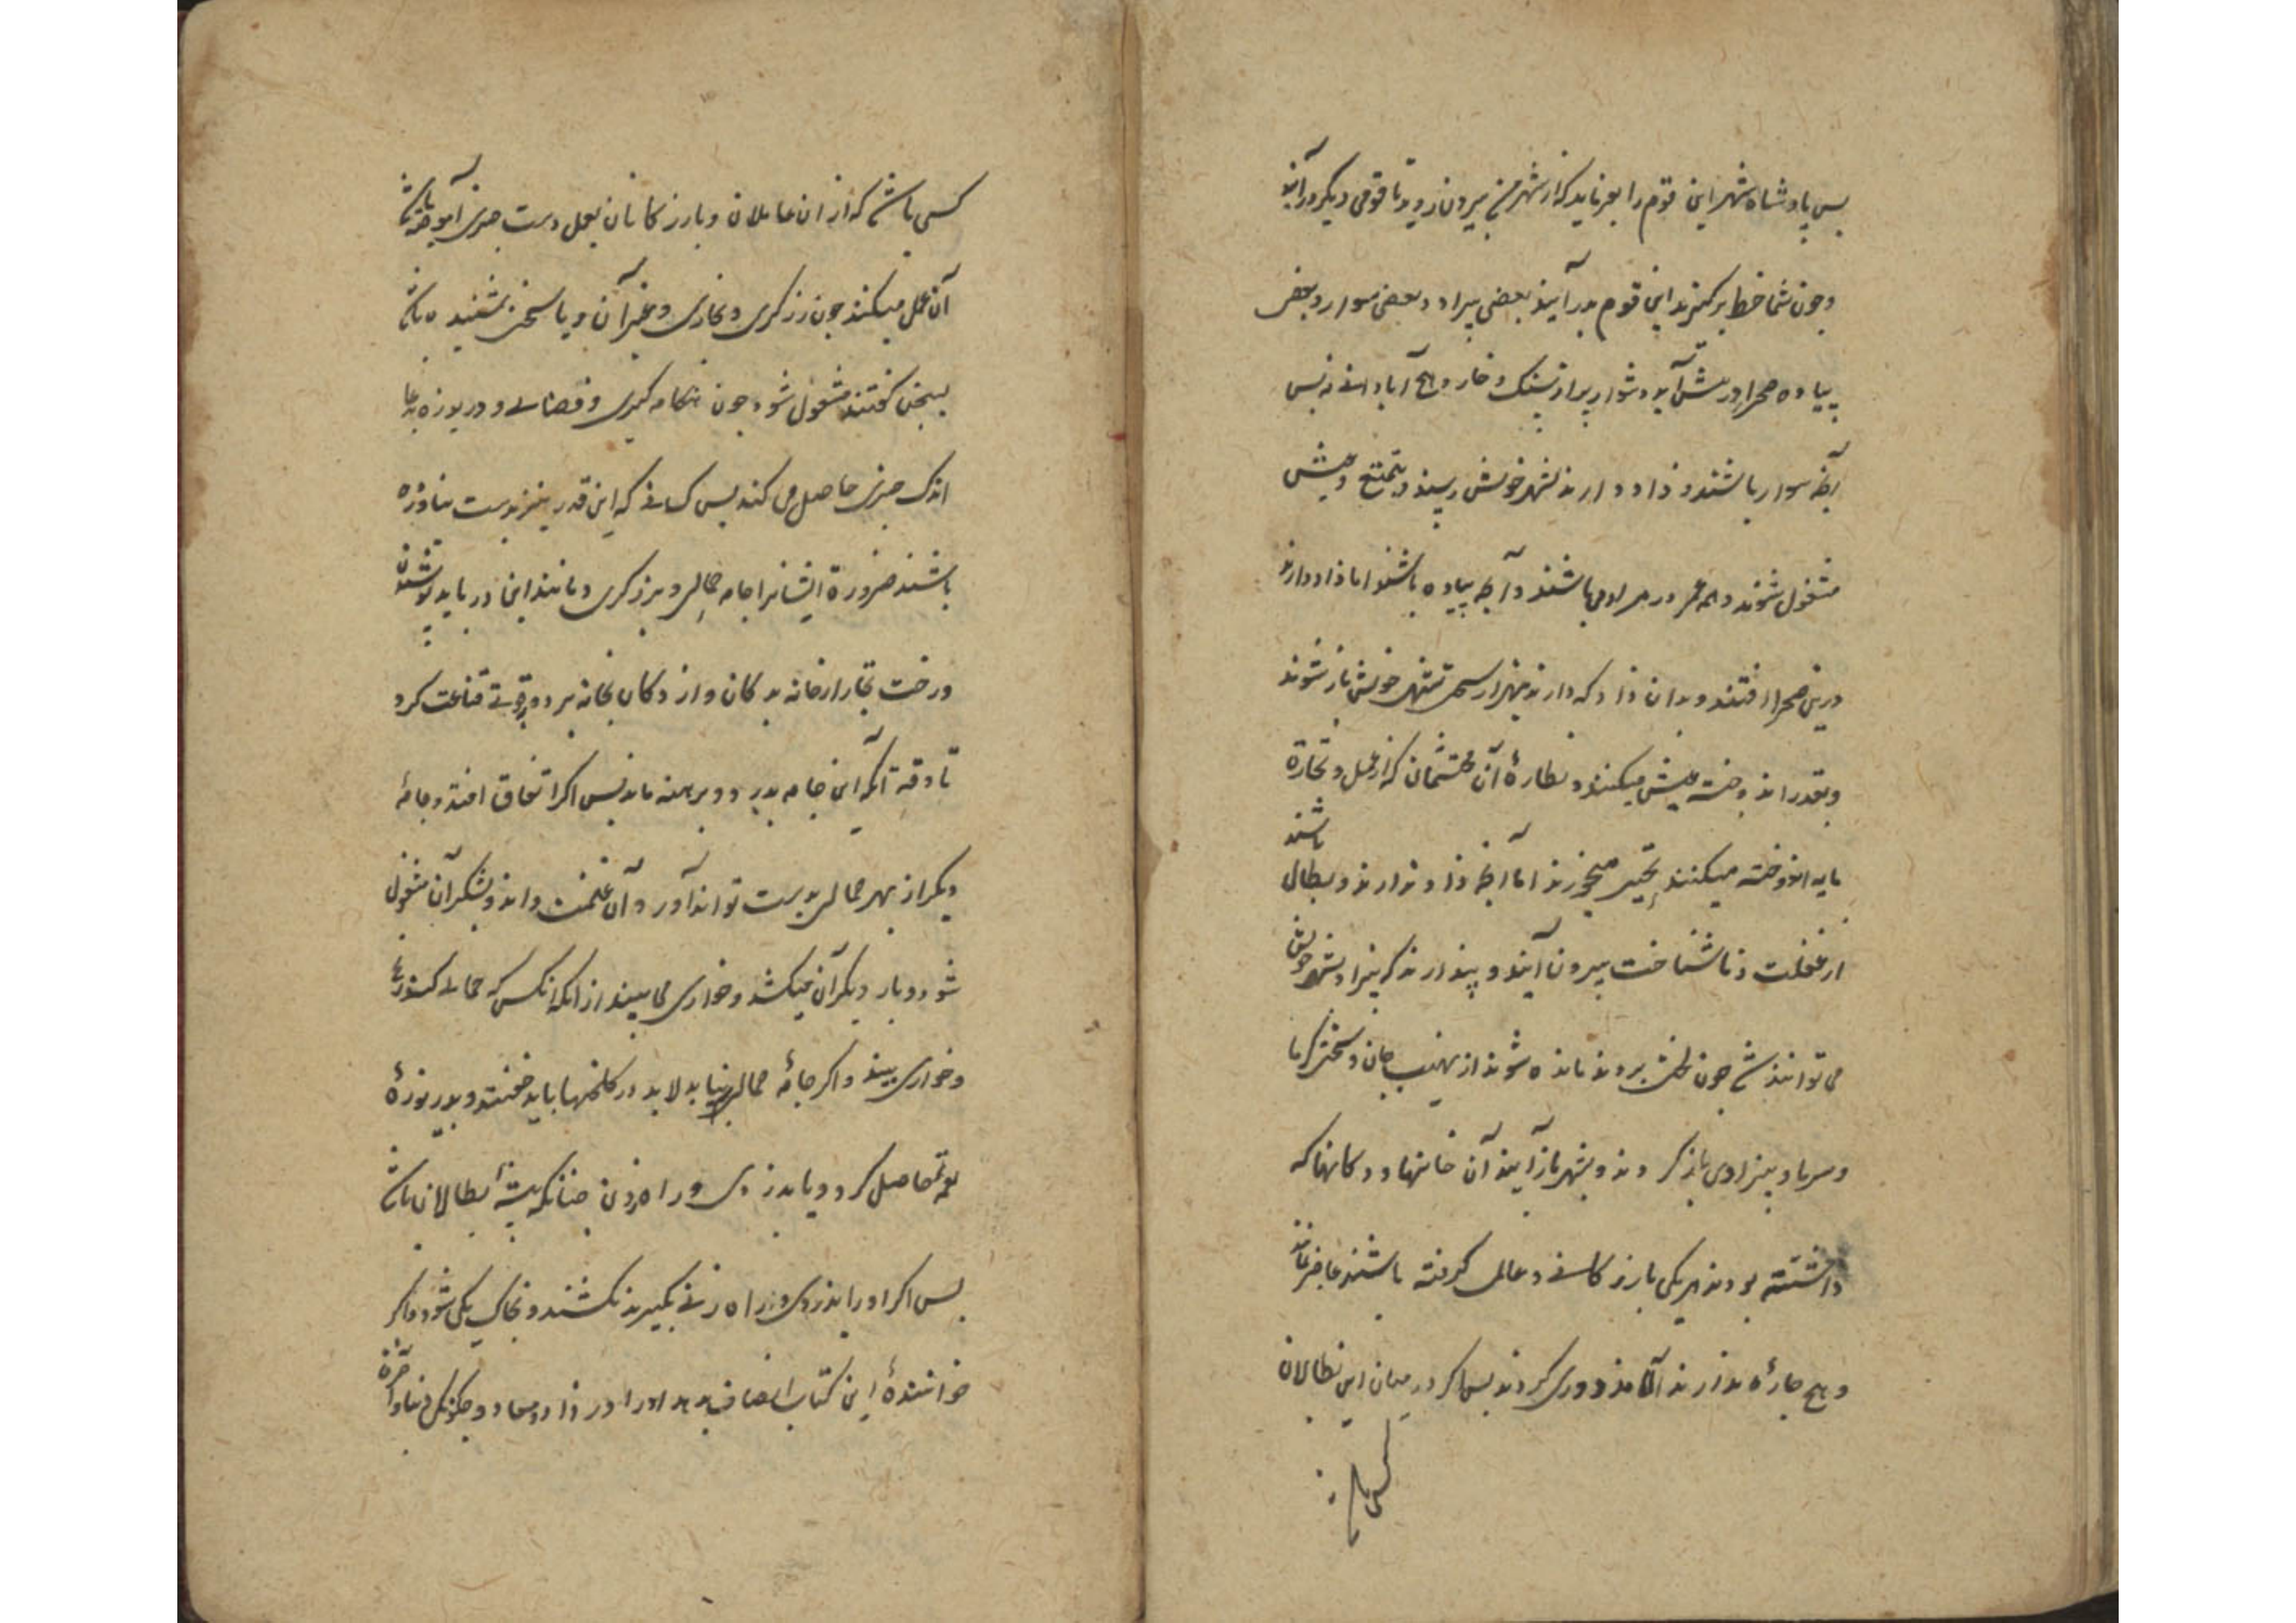 بس پادشاه شهر این قوم را بفرماید که از شهر من بیرون روید تا قومی دیگر درآیند
و چون شما خط برگیرند این قوم بدر آیند بعضی براد و بعضی سوار و بعضی
پیاده صحرا در پیش آید دشوار پر از سنگ و خار و هیچ آبادانی نه پس
آنچه سوار باشند و زاد دارند بشهر خویش رسند و بتمتع و عیش
مشغول شوند و همه عمر در مراد می باشند و آنچه پیاده باشند اما زاد دارند
درین صحرا افتند و بدان زاد که دارند بهزار سختی بشهر خویش باز شوند
و بقدر اندوخته عیش میکنند و نظاره آن محتشمان که از عمل و تجارة
مایه اندوخته میکنند بتحیر میخورند اما آنچه زاد ندارند و بطال باشند
از غفلت و ناشناخت بیرون آیند و پندارند که بیزاد بشهر خویش
می توانند شد چون لختی بروند مانده شوند از نهیب جان و سختی گرما
و سرما و بیزادی باز گردند و بشهر باز آیند آن خانها و دکانها که
داشته بودند هر یکی بازرگانی و عامل گرفته باشند عاجز مانند
و هیچ چاره ندارند الا مزدوری کردن پس اگر در میان این بطالان
کسی باشد که از ان عاملان و بازرگانان بعمل دست چیزی آموخته باشد
آن عمل میکند چون زرگری و نجاری و غیر آن و یا سخن شنیده باشد
بسخن گفتن مشغول شود چون هنگامه گیری و قصالی و دریوزه بدعا
اندک چیزی حاصل می کند پس کسانی که این قدر نیز بدست نیاورده
باشند ضرورة ایشانرا جامه حمالی و برزگری و مانند این در باید پوشیدن
و رخت تجار از خانه بدکان و از دکان بخانه برد و بقوتی قناعت کرد
تا وقت آنکه این جامه بدرد و برهنه ماند پس اگر اتفاق افتد و جامه
دیگر از بهر حمالی بدست تواند آورد آن غنیمت داند و بشکر آن مشغول
شود و بار دیگر آن میکشد و خواری می بیند از آنکه آنکس که حمالی کند
و خواری بیند و اگر جامه حمالی نیابد لابد در گلخنها باید خفت و بدریوزه
لقمه حاصل کرد و یا بدزدی و راه زدن چنانکه پیشه بطالان باشد
پس اگر او را بدزدی و راه زنی بگیرند بکشند و بخاک یکی شود و اگر
خواننده این کتاب انصاف بدهد او را در زاد و معاد و چگونگی دنیا و آخرة
کسی باشد